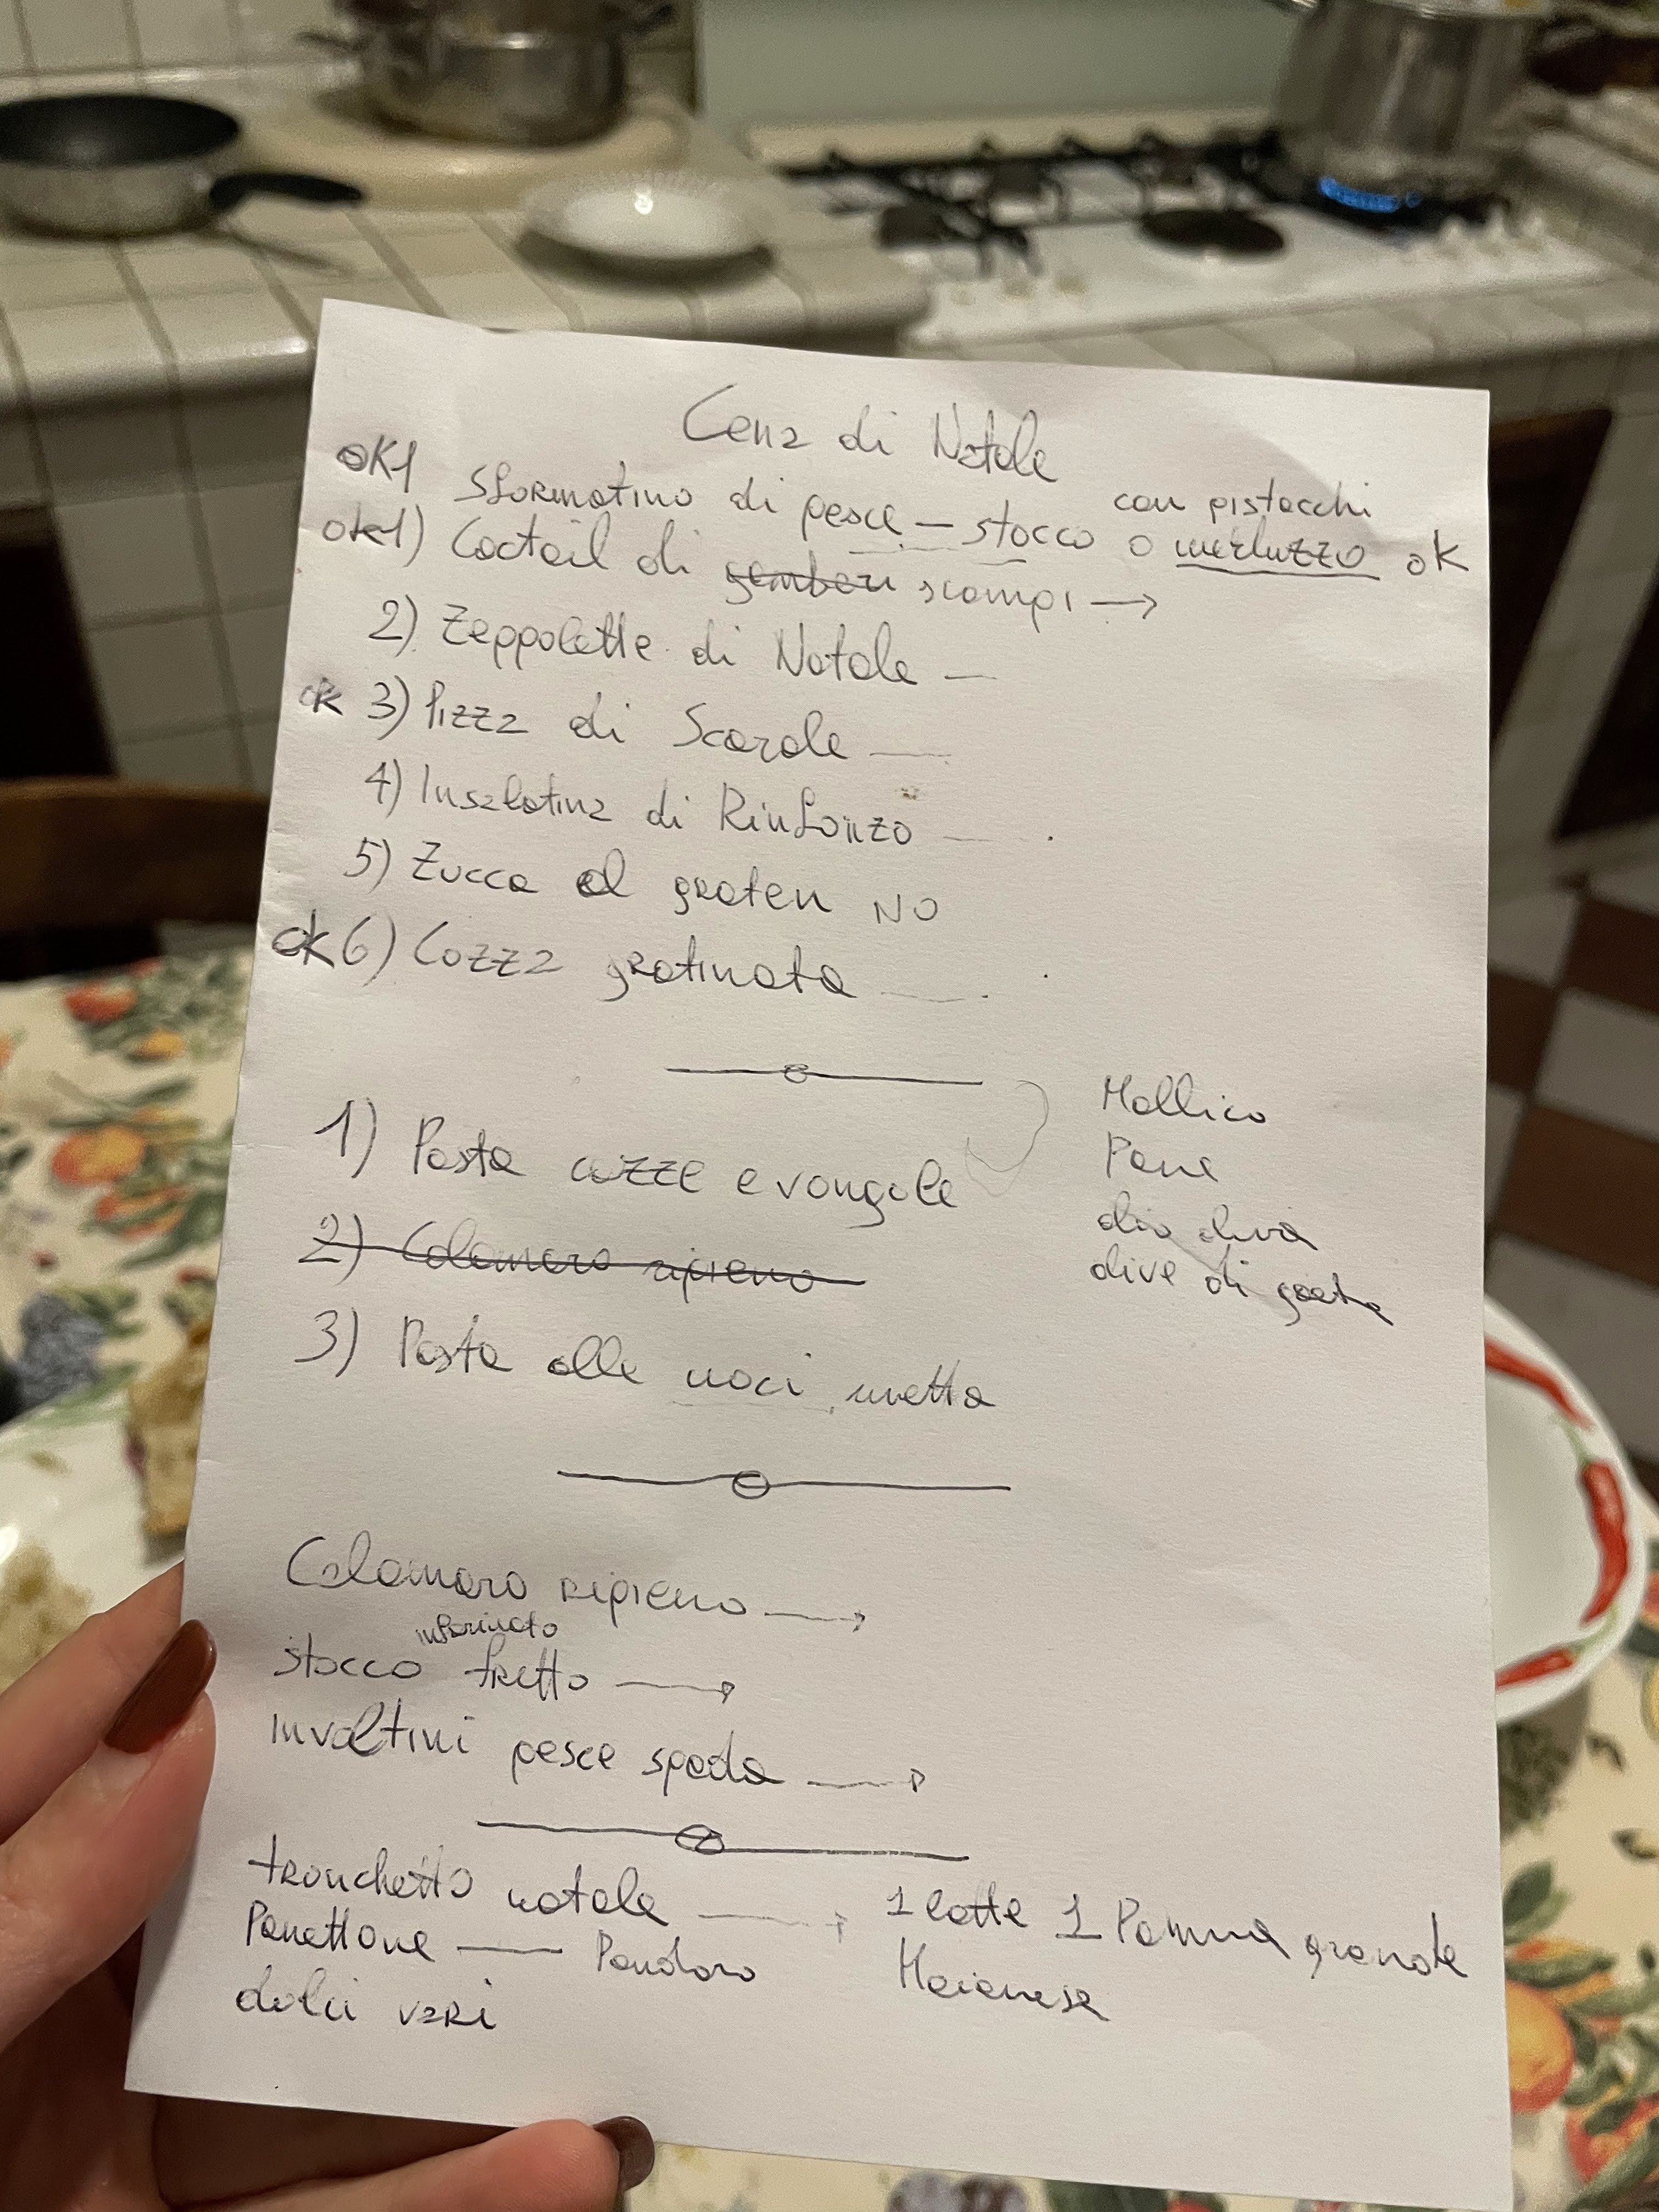 Cena di Natale
ok1 Sformatino di pesce — stocco o merluzzo ok
con pistacchi
ok1) Coctail di gamberi scampi →
2) Zeppolette di Natale —
ok 3) Pizza di Scarole —
4) Insalatina di Rinforzo —
5) Zucca al graten NO
ok 6) Cozza gratinata —
1) Pasta cozze e vongole
2) Calamaro ripieno
3) Pasta alle noci
Mollica
Pane
olio oliva
olive di gaeta
Calamaro ripieno →
infarinato
stocco fritto →
involtini pesce spada →
tronchetto natale → 1 latte 1 Panna grande
Panettone — Pandoro
Maionese
dolci vari